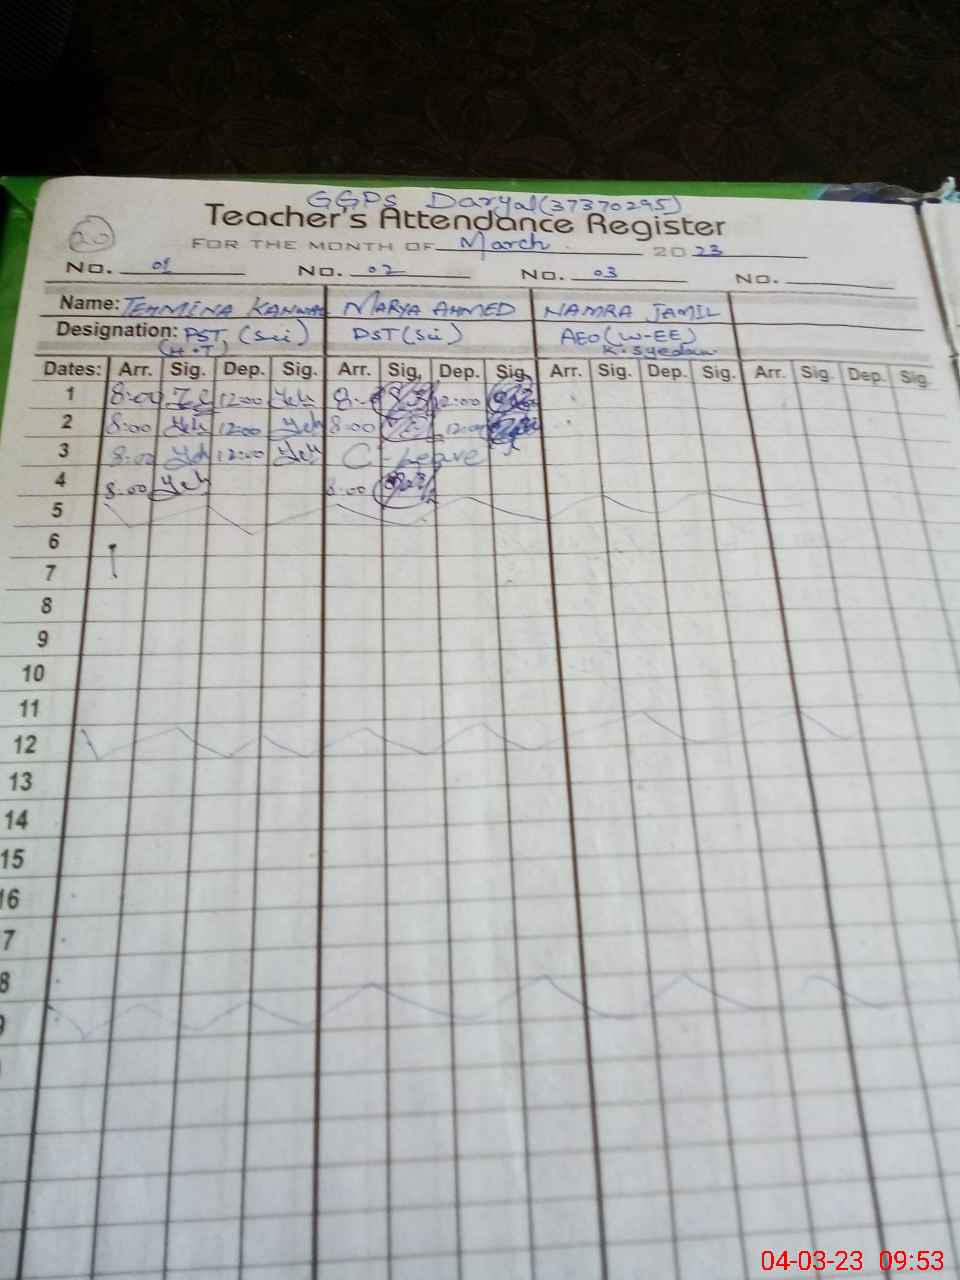 GGPS Daryal (37370295)
Teacher's Attendance Register
20
FOR THE MONTH OF March 2023
No. 01 No. 02 No. 03 No.
Name: TEHMINA KANWAL MARYA AHMED NAMRA JAMIL
Designation: PST, (Sci) DST (Sci) AEO (W-EE)
(H.T) K. Syedan
Dates: Arr. Sig. Dep. Sig. Arr. Sig. Dep. Sig. Arr. Sig. Dep. Sig. Arr. Sig. Dep. Sig.
1 8:00 12:00 8:00 12:00
2 8:00 12:00 8:00 12:00
3 8:00 12:00 C-Leave
4 8:00 8:00
5
6
7
8
9
10
11
12
13
14
15
16
7
8
9
04-03-23 09:53